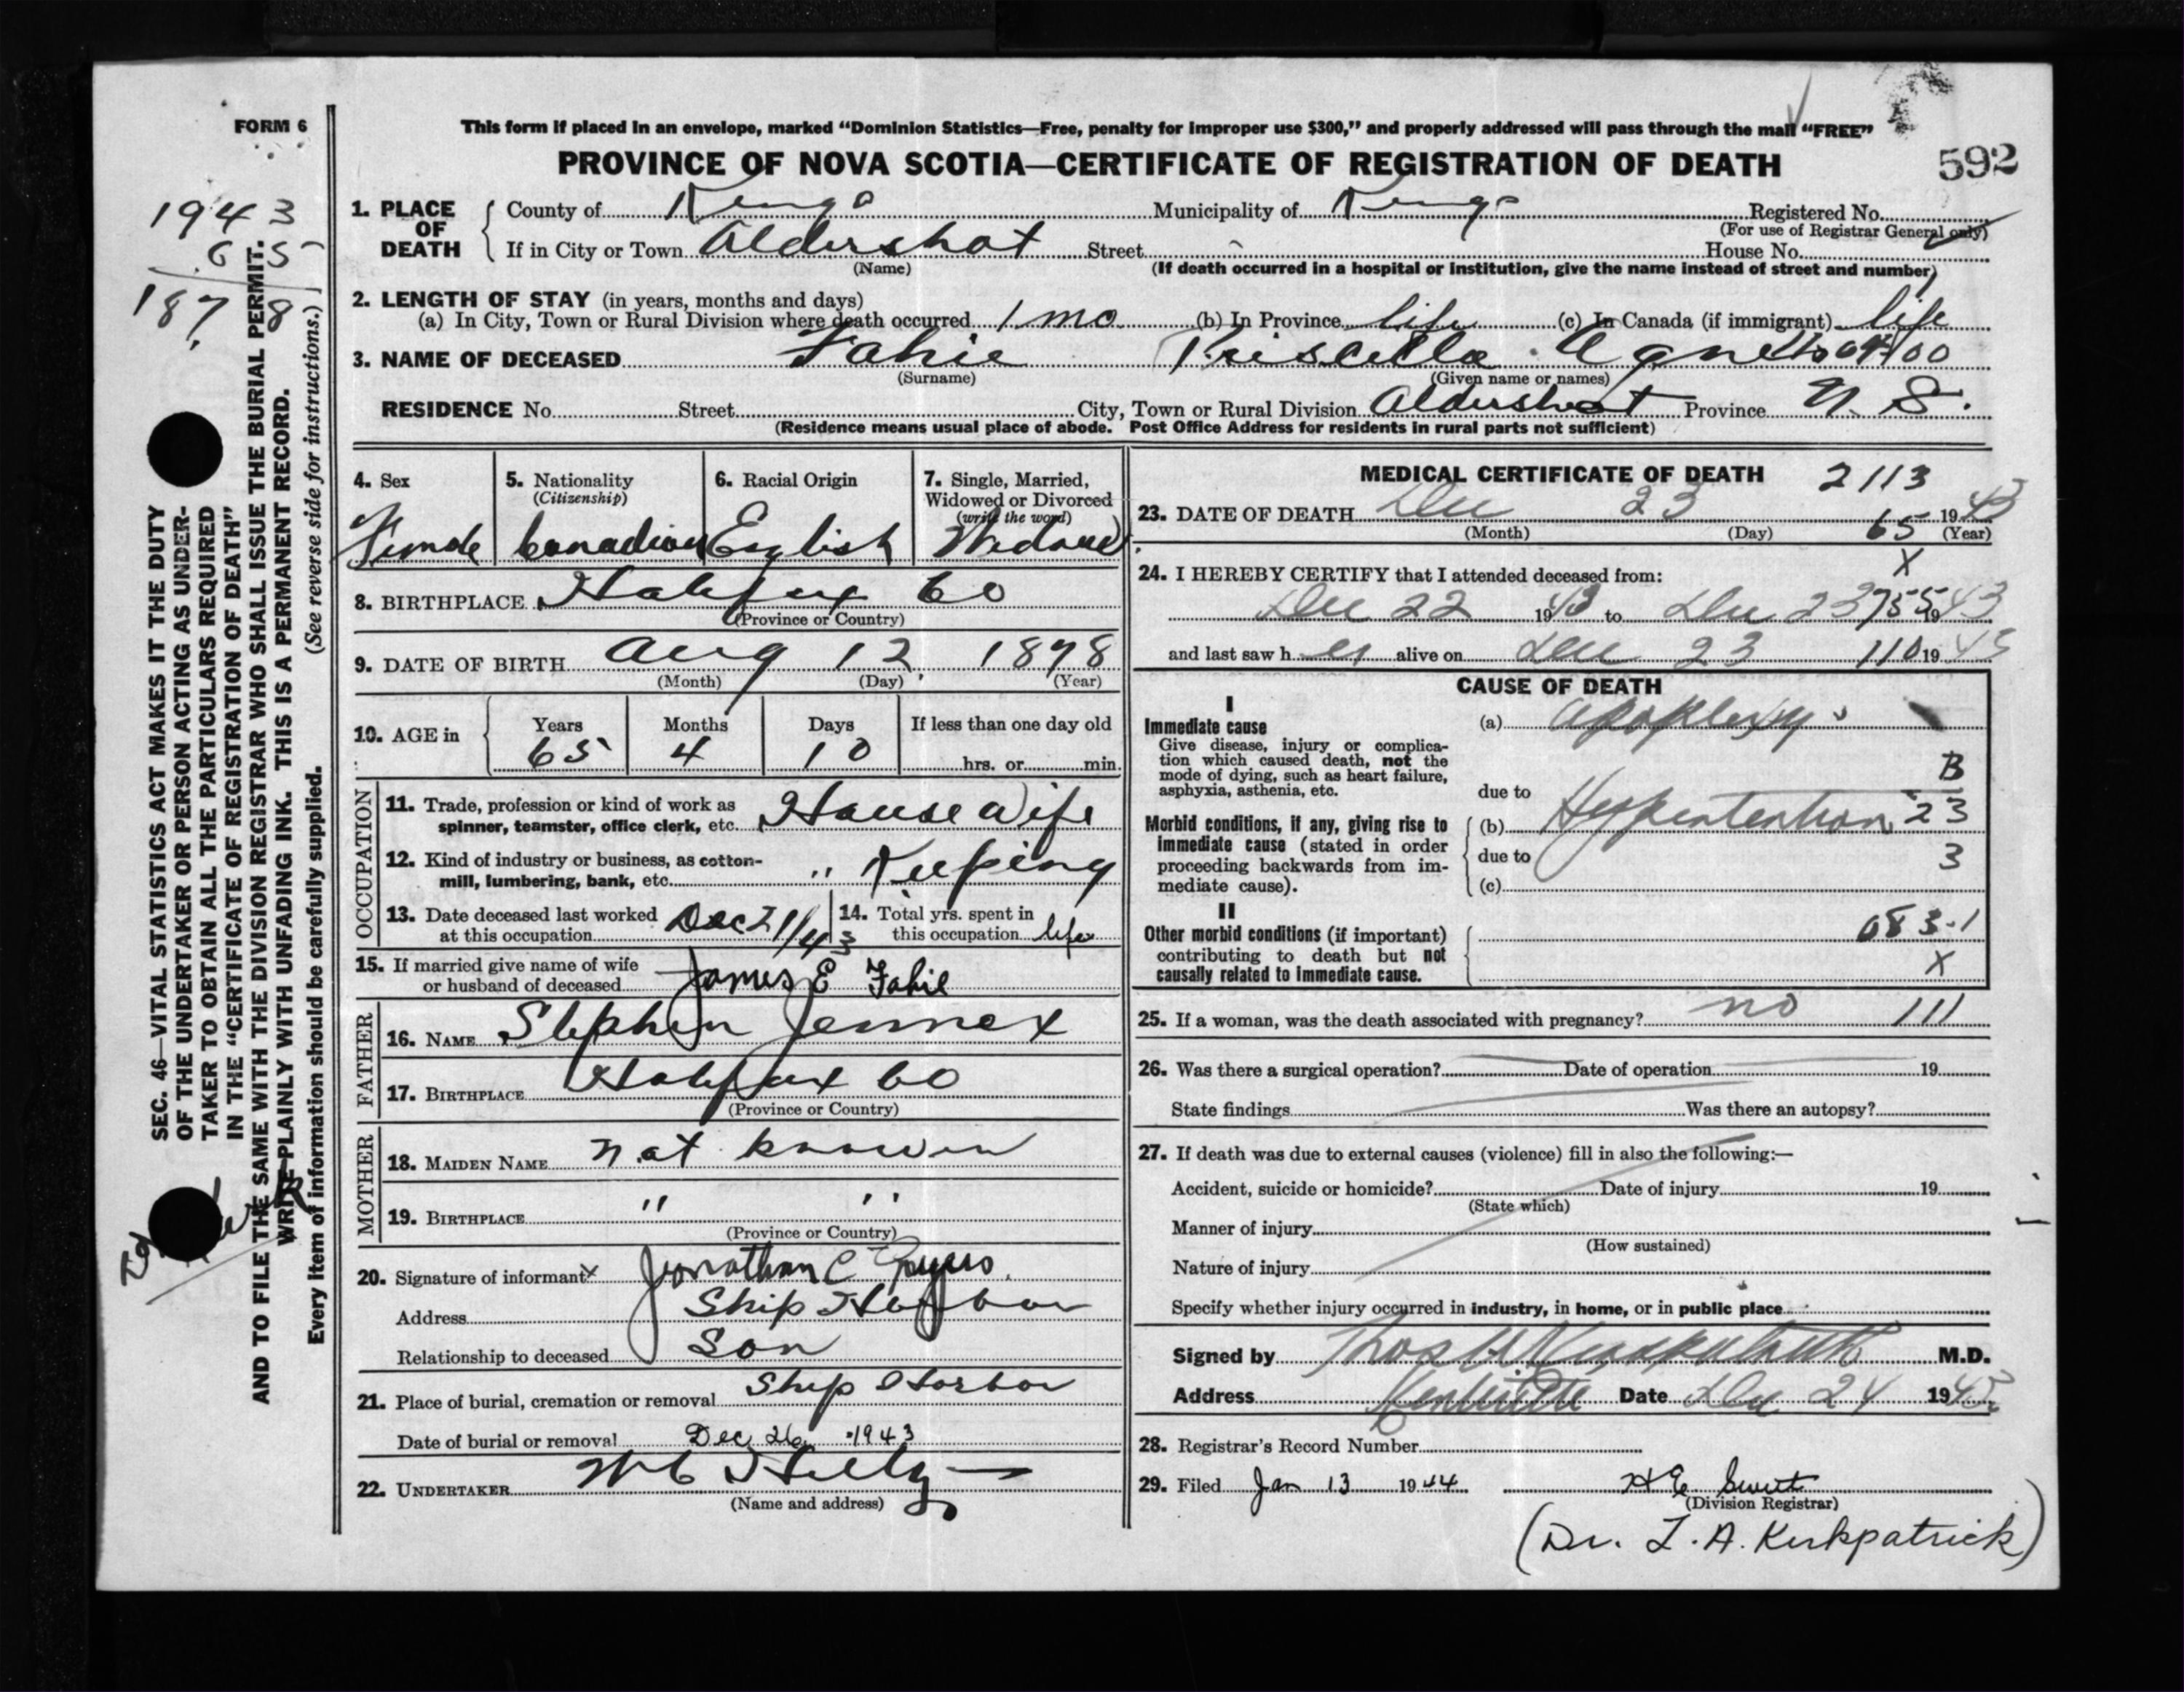 FORM 6
This form if placed in an envelope, marked “Dominion Statistics—Free, penalty for improper use $300,” and properly addressed will pass through the mail “FREE”
PROVINCE OF NOVA SCOTIA—CERTIFICATE OF REGISTRATION OF DEATH
592
1943
65
1878
SEC. 46—VITAL STATISTICS ACT MAKES IT THE DUTY
OF THE UNDERTAKER OR PERSON ACTING AS UNDER-
TAKER TO OBTAIN ALL THE PARTICULARS REQUIRED
IN THE “CERTIFICATE OF REGISTRATION OF DEATH”
AND TO FILE THE SAME WITH THE DIVISION REGISTRAR WHO SHALL ISSUE THE BURIAL PERMIT.
WRITE PLAINLY WITH UNFADING INK. THIS IS A PERMANENT RECORD.
Every item of information should be carefully supplied. (See reverse side for instructions.)
1. PLACE OF DEATH County of Kings Municipality of Kings Registered No.
(For use of Registrar General only)
If in City or Town Aldershot Street House No.
(Name) (If death occurred in a hospital or institution, give the name instead of street and number)
2. LENGTH OF STAY (in years, months and days)
(a) In City, Town or Rural Division where death occurred 1 mo (b) In Province life (c) In Canada (if immigrant) life
3. NAME OF DECEASED Fahie Priscilla Agnes
(Surname) (Given name or names)
RESIDENCE No. Street City, Town or Rural Division Aldershot Province N. S.
(Residence means usual place of abode. Post Office Address for residents in rural parts not sufficient)
4. Sex
Female
5. Nationality
(Citizenship)
Canadian
6. Racial Origin
English
7. Single, Married,
Widowed or Divorced
(write the word)
Widowed
8. BIRTHPLACE Halifax Co
(Province or Country)
9. DATE OF BIRTH Aug 12, 1878
(Month) (Day) (Year)
10. AGE in Years Months Days If less than one day old
65 4 10 hrs. or min.
OCCUPATION
11. Trade, profession or kind of work as
spinner, teamster, office clerk, etc. House wife
12. Kind of industry or business, as cotton-
mill, lumbering, bank, etc. " Keeping
13. Date deceased last worked
at this occupation Dec 21/43
14. Total yrs. spent in
this occupation life
15. If married give name of wife
or husband of deceased James E Fahie
FATHER
16. NAME Stephen Jennex
17. BIRTHPLACE Halifax Co
(Province or Country)
MOTHER
18. MAIDEN NAME not known
19. BIRTHPLACE " "
(Province or Country)
20. Signature of informant x Jonathan C
Address Ship Harbor
Relationship to deceased Son
21. Place of burial, cremation or removal Ship Harbor
Date of burial or removal Dec 26 1943
22. UNDERTAKER
(Name and address)
MEDICAL CERTIFICATE OF DEATH 2113
23. DATE OF DEATH Dec 23 1943
(Month) (Day) (Year)
65
X
24. I HEREBY CERTIFY that I attended deceased from:
Dec 22 1943 to Dec 23 1943
755
and last saw her alive on Dec 23 1943
110
CAUSE OF DEATH
I
Immediate cause
Give disease, injury or complica-
tion which caused death, not the
mode of dying, such as heart failure,
asphyxia, asthenia, etc.
(a) Apoplexy
B
due to
Morbid conditions, if any, giving rise to
immediate cause (stated in order
proceeding backwards from im-
mediate cause).
(b) Hypertention 23
due to 3
(c)
II
Other morbid conditions (if important)
contributing to death but not
causally related to immediate cause.
083.1
X
25. If a woman, was the death associated with pregnancy? no 111
26. Was there a surgical operation? Date of operation 19
State findings Was there an autopsy?
27. If death was due to external causes (violence) fill in also the following:—
Accident, suicide or homicide? Date of injury 19
(State which)
Manner of injury
(How sustained)
Nature of injury
Specify whether injury occurred in industry, in home, or in public place
Signed by M.D.
Address Kentville Date Dec 24 1943
28. Registrar’s Record Number
29. Filed Jan 13 1944 H E
(Division Registrar)
(Dr. T. A. Kirkpatrick)